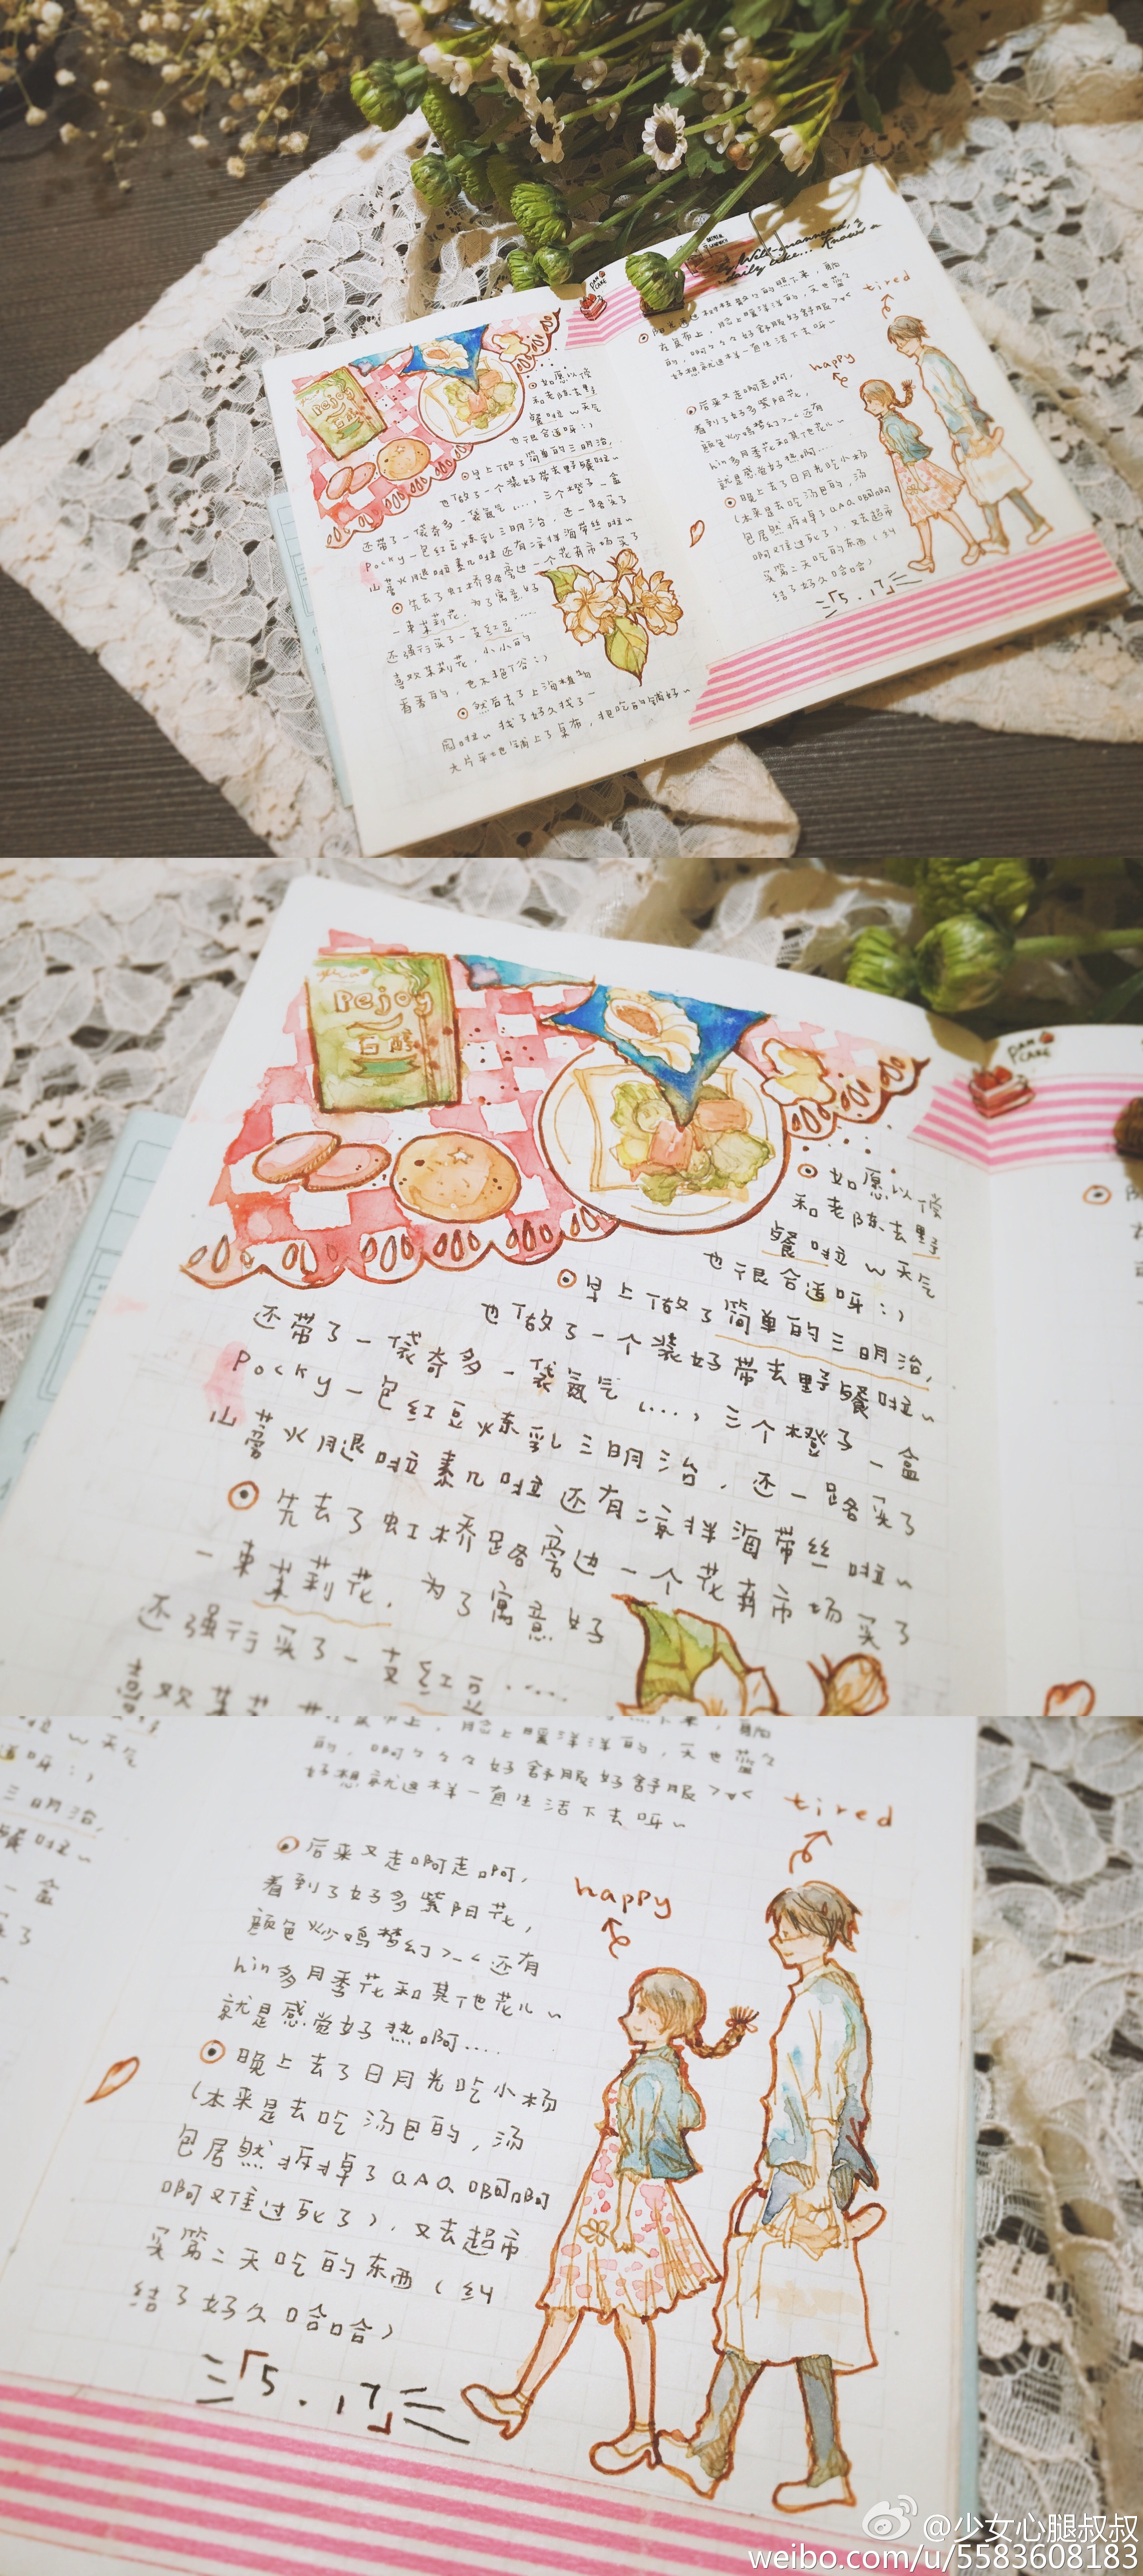 Pejoy
JAM
CAKE
如愿以偿
和老陈去野
餐啦~天气
也很合适呀:)
早上做了简单的三明治,
也做了一个装好带去野餐啦~
还带了一袋奇多一袋氮气(....),三个橙子一盒
Pocky一包红豆炼乳三明治,还一路买了
火腿啦素几啦还有凉拌海带丝啦~
先去了虹桥路旁边一个花卉市场买了
一束茉莉花,为了寓意好
还强行买了一支红豆......
喜欢茉莉花,小小的
香香的,也不艳俗:)
然后去了上海植物
园啦~找了好久找了一
大片平地铺上了桌布,把吃的铺好~
在桌布上,脸上暖洋洋的,天也蓝々
的,啊々々々好舒服好舒服>v<
好想就这样一直生活下去呀~
后来又走啊走啊,
看到了好多紫阳花,
颜色炒鸡梦幻>_<还有
hin多月季花和其他花儿~
就是感觉好热啊....
晚上去了日月光吃小杨
(本来是去吃汤包的,汤
包居然拆掉了QAQ啊啊
啊难过死了),又去超市
买第二天吃的东西(纠
结了好久哈哈)
「5.17」
happy
tired
@少女心腿叔叔
weibo.com/u/5583608183